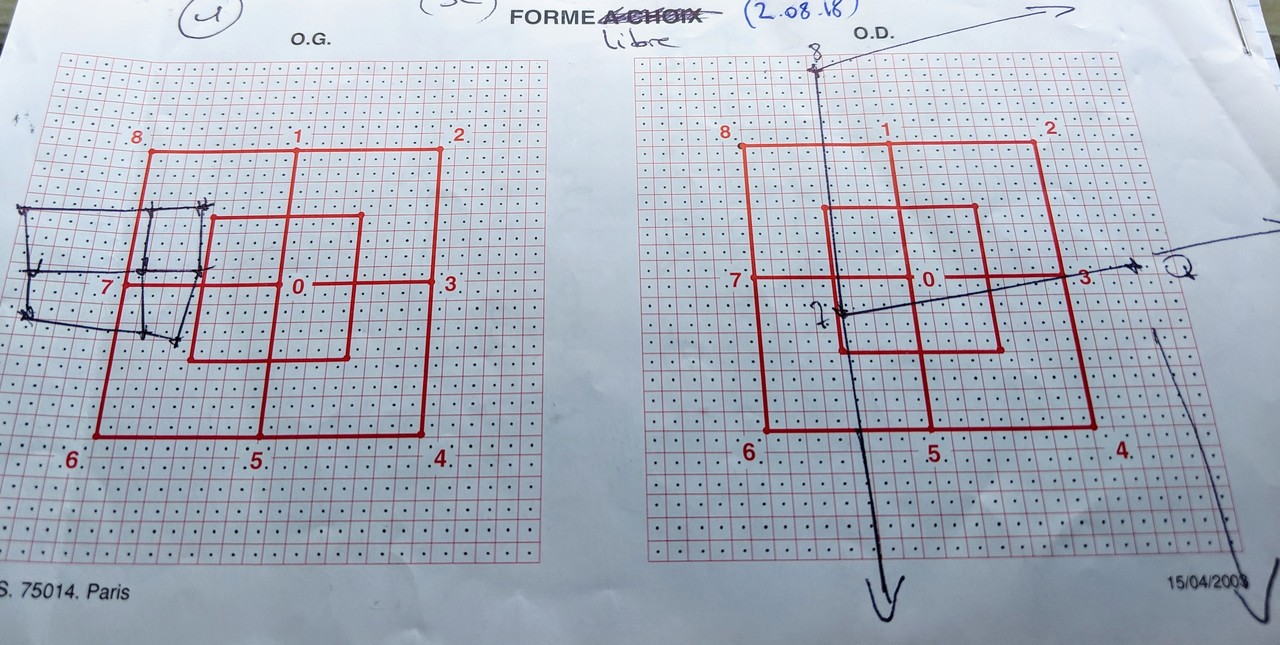 FORME A CHOIX (2.08.18)
libre
O.G. O.D.
8
8. 1 2
7. 0 3.
6. 5. 4.
8. 1 2.
7 0 3.
7
6 5. 4.
S. 75014. Paris
15/04/2003